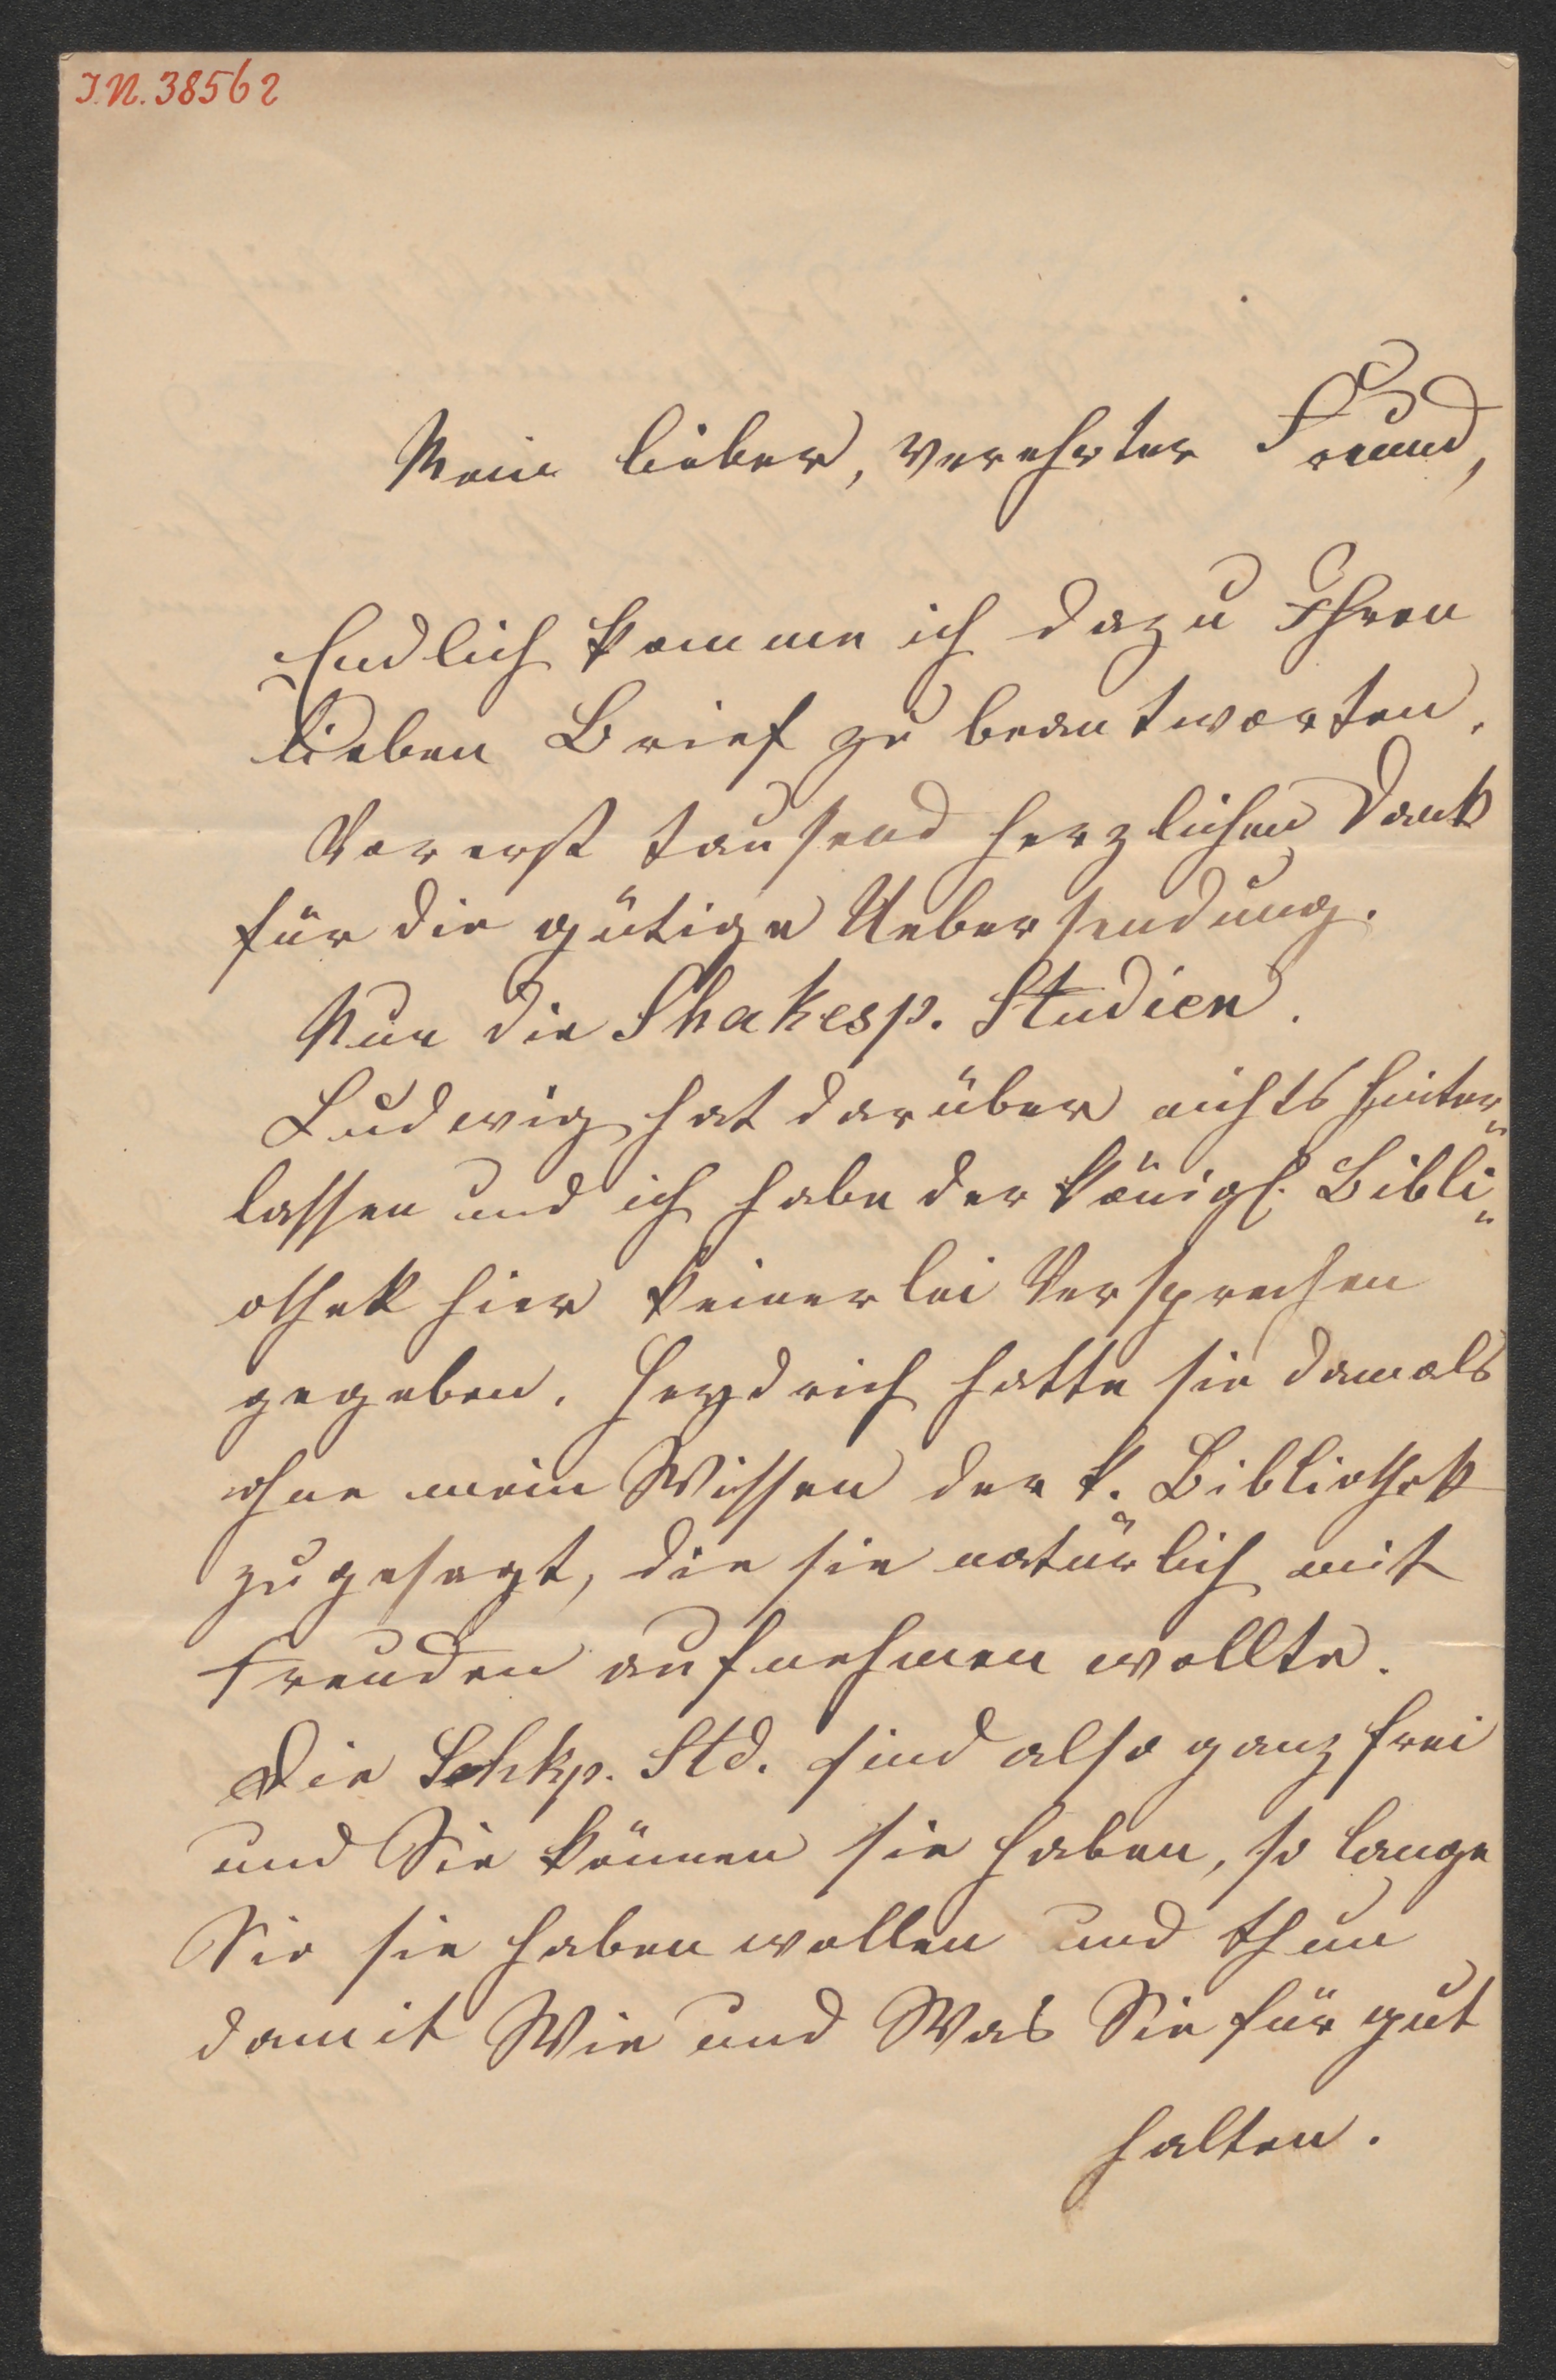 I.N. 38562
Mein lieber, verehrter Freund,
Endlich komme ich dazu Ihren
lieben Brief zu beantworten.
Vorerst tausend herzlichen Dank
für die gütige Uebersendung.
Nun die Shakesp. Studien.
Ludwig hat darüber nichts hinter„
lassen und ich habe der königl. Bibli„
othek hier keinerlei Versprechen
gegeben. Heydrich hatte sie damals
ohne mein Wissen der k. Bibliothek
zugesagt, die sie natürlich mit
Freuden aufnehmen wollte.
Die Schkp. Std. sind also ganz frei
und Sie können sie haben, so lange
Sie sie haben wollen und thun
damit Wie und Was Sie für gut
halten.